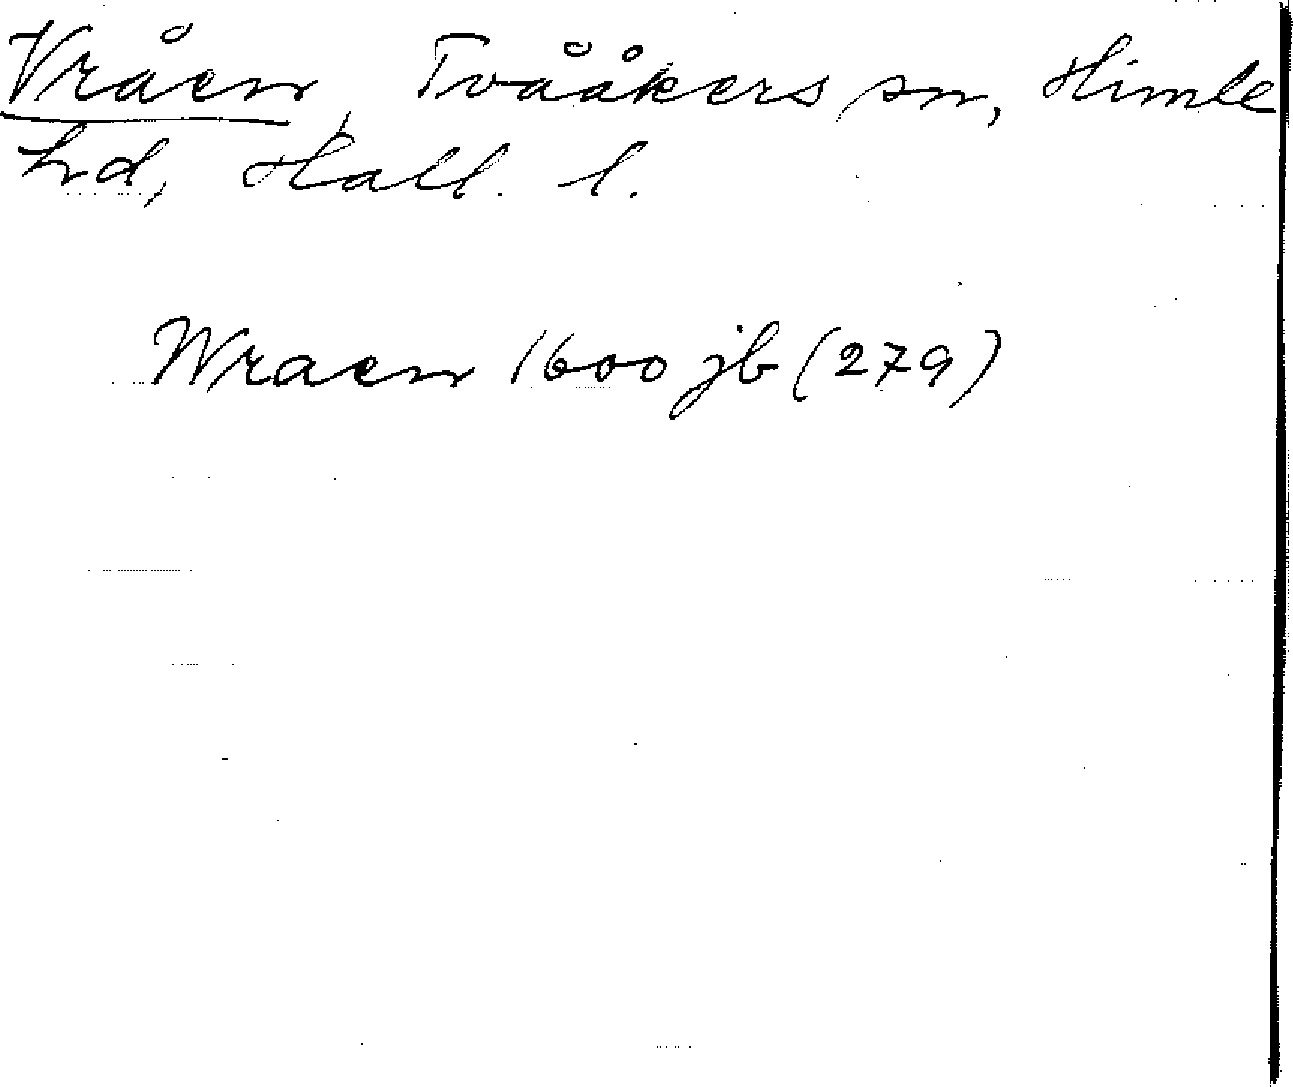 Vråen, Tvååkers sn, Himle
hd, Hall. l.
Wraen 1600 jb (279)